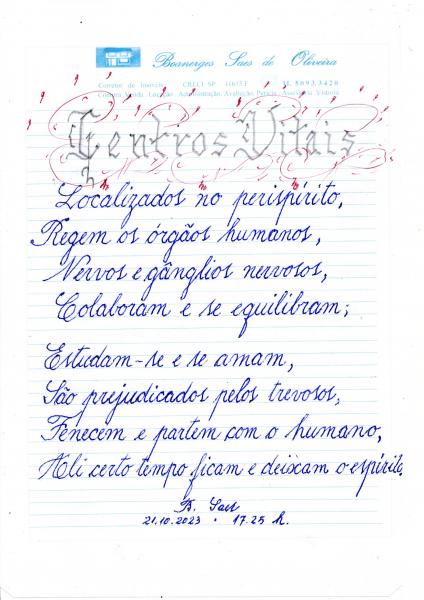 Boanerges Saes de Oliveira
Corretor de Imóveis CRECI SP
Compra, Venda, Locação, Administração, Avaliação, Perícia, Assessoria, Vistoria
Centros Vitais
Localizados no perispírito,
Regem os órgãos humanos,
Nervos e gânglios nervosos,
Colaboram e se equilibram;
Estudam-se e se amam,
São prejudicados pelos trevosos,
Fenecem e partem com o humano,
Ali certo tempo ficam e deixam o espírito.
B. Saes
21.10.2023 • 17.25 h.